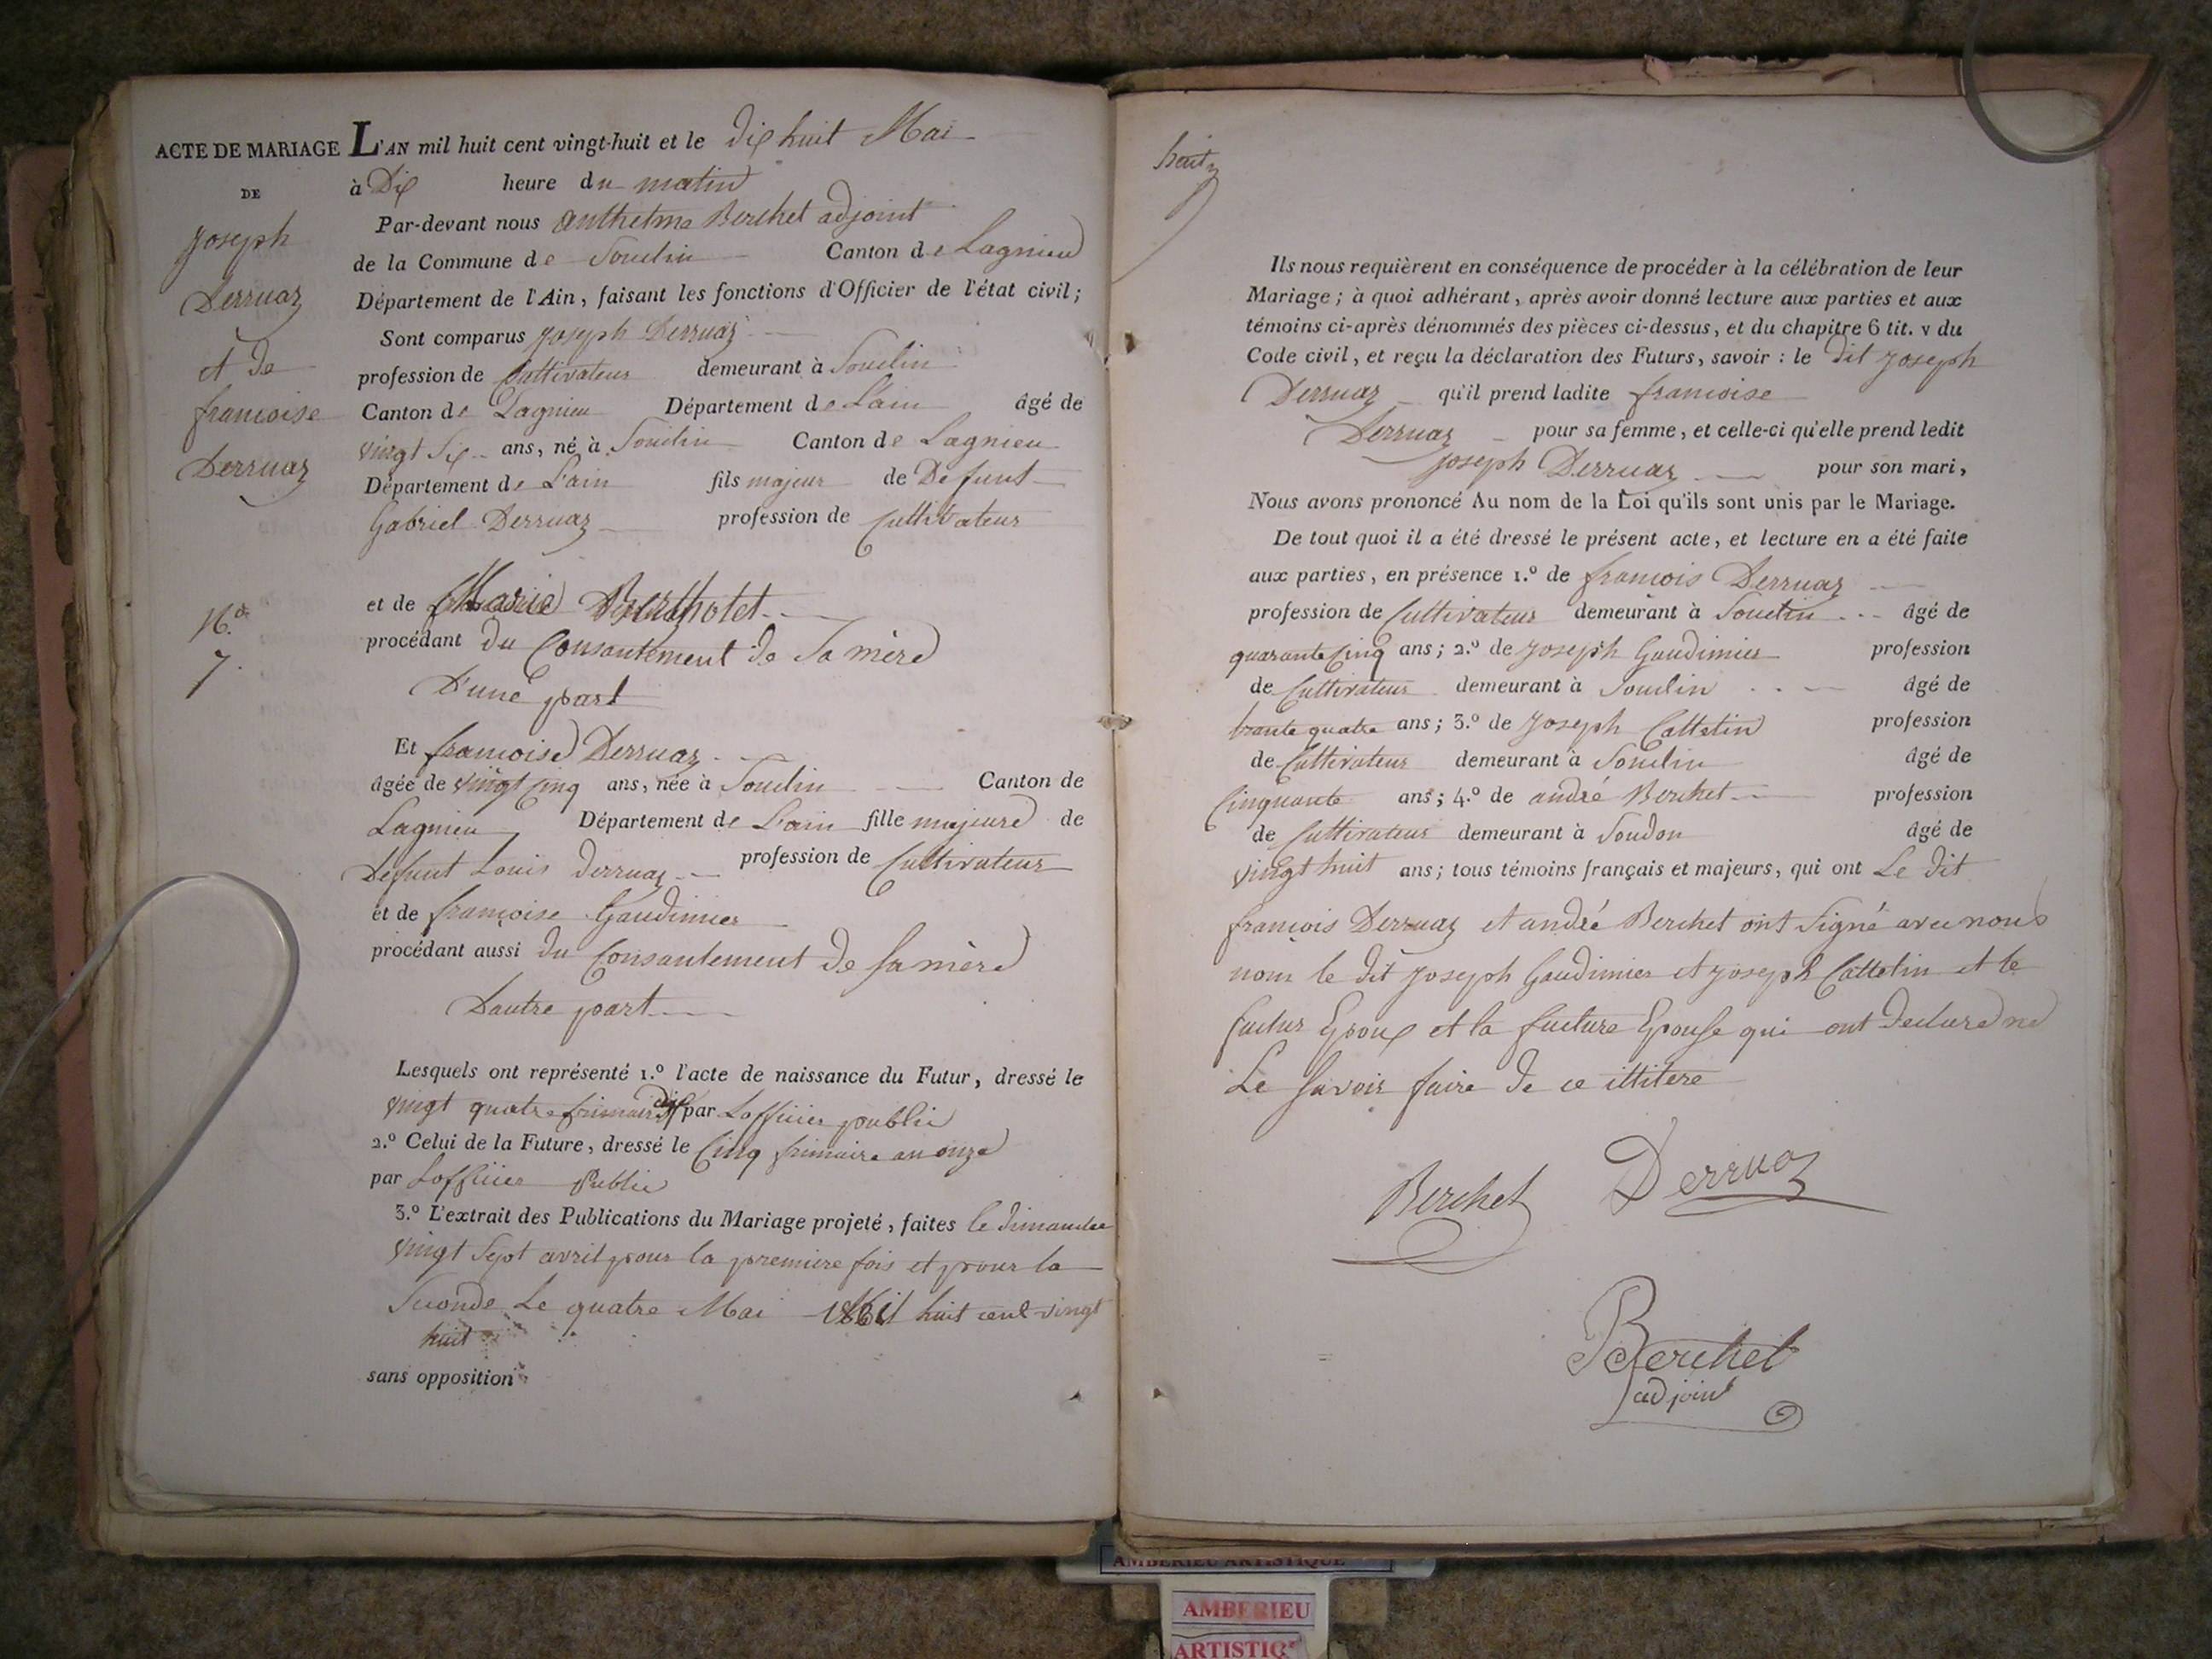 ACTE DE MARIAGE
DE
Joseph
Derruaz
et de
francoise
Derruaz
N.o
7.
L'AN mil huit cent vingt-huit et le dix huit Mai
à Dix heure du matin
Par-devant nous anthelme Berchet adjoint
de la Commune de Souclin Canton de Lagnieu
Département de l'Ain, faisant les fonctions d'Officier de l'état civil;
Sont comparus joseph Derruaz
profession de Cultivateur demeurant à Souclin
Canton de Lagnieu Département de Lain âgé de
vingt Six ans, né à Souclin Canton de Lagnieu
Département de L'ain fils majeur de Defunt
Gabriel Derruaz profession de Cultivateur
et de Marie Berthotet
procédant du Consantement de Sa mère
D'une part
Et francoise Derruaz
âgée de vingt Cinq ans, née à Souclin Canton de
Lagnieu Département de L'ain fille majeure de
Defunt Louis Derruaz profession de Cultivateur
et de françoise Gaudimier
procédant aussi du Consantement de Sa mère
Dautre part
Lesquels ont représenté 1.º l'acte de naissance du Futur, dressé le
vingt quatre frimaire dix par Lofficier public
2.º Celui de la Future, dressé le Cinq frimaire an onze
par Lofficier Public
3.º L'extrait des Publications du Mariage projeté, faites le dimanche
vingt Sept avril pour la premiere fois et pour la
Seconde Le quatre Mai Mil huit cent vingt
huit
sans opposition
huit
Ils nous requièrent en conséquence de procéder à la célébration de leur
Mariage; à quoi adhérant, après avoir donné lecture aux parties et aux
témoins ci-après dénommés des pièces ci-dessus, et du chapitre 6 tit. v du
Code civil, et reçu la déclaration des Futurs, savoir: le dit joseph
Derruaz qu'il prend ladite francoise
Derruaz pour sa femme, et celle-ci qu'elle prend ledit
joseph Derruaz pour son mari,
Nous avons prononcé Au nom de la Loi qu'ils sont unis par le Mariage.
De tout quoi il a été dressé le présent acte, et lecture en a été faite
aux parties, en présence 1.º de francois Derruaz
profession de Cultivateur demeurant à Souclin âgé de
quarante Cinq ans; 2.º de joseph Gaudimier profession
de Cultivateur demeurant à Souclin âgé de
trante quatre ans; 3.º de joseph Cattetin profession
de Cultivateur demeurant à Souclin âgé de
Cinquante ans; 4.º de andré Berchet profession
de Cultivateur demeurant à Soudon âgé de
vingt huit ans; tous témoins français et majeurs, qui ont Le dit
francois Derruaz et andré Berchet ont Signé avec nous
non le dit joseph Gaudimier et joseph Cattetin et le
futur Epoux et la fucture Epouse qui ont declare ne
Le Savoir faire de ce ittitere
Berchet Derruaz
Berchet
adjoint
AMBERIEU ARTISTIQUE
AMBERIEU
ARTISTIQ